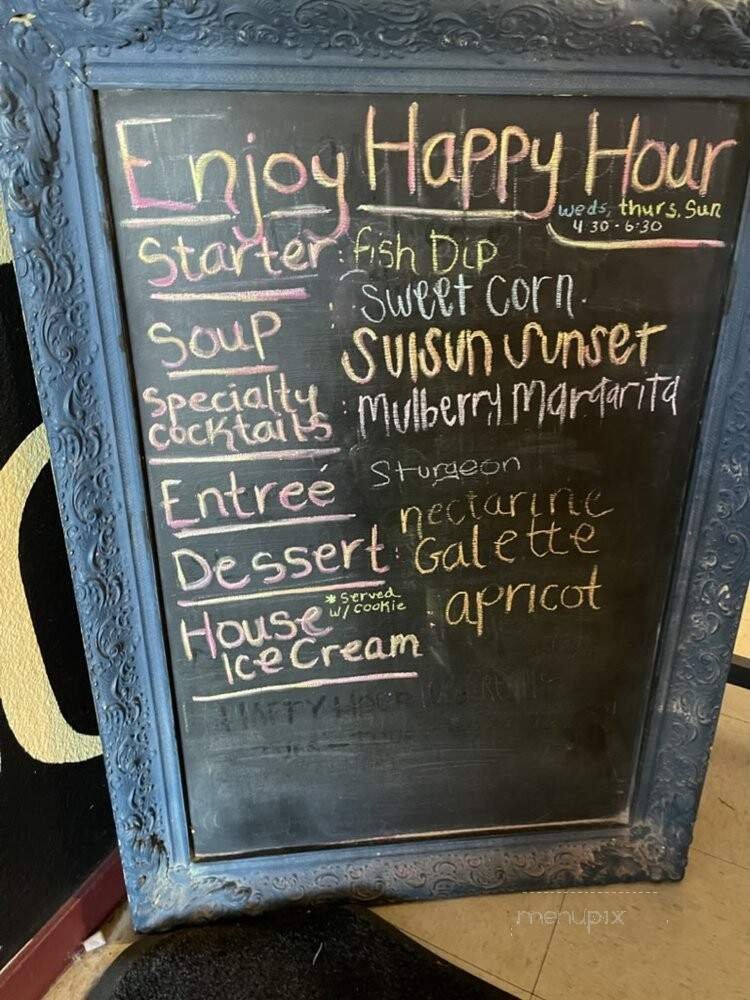 Enjoy Happy Hour
weds, thurs, Sun
4:30 - 6:30
Starter : fish Dip
Soup : Sweet Corn
Specialty Cocktails : Suisun Sunset
Mulberry Margarita
Entreé Sturgeon
Dessert : nectarine
Galette
House Ice Cream : apricot
*Served
w/ cookie
HAPPY HOUR
menupix